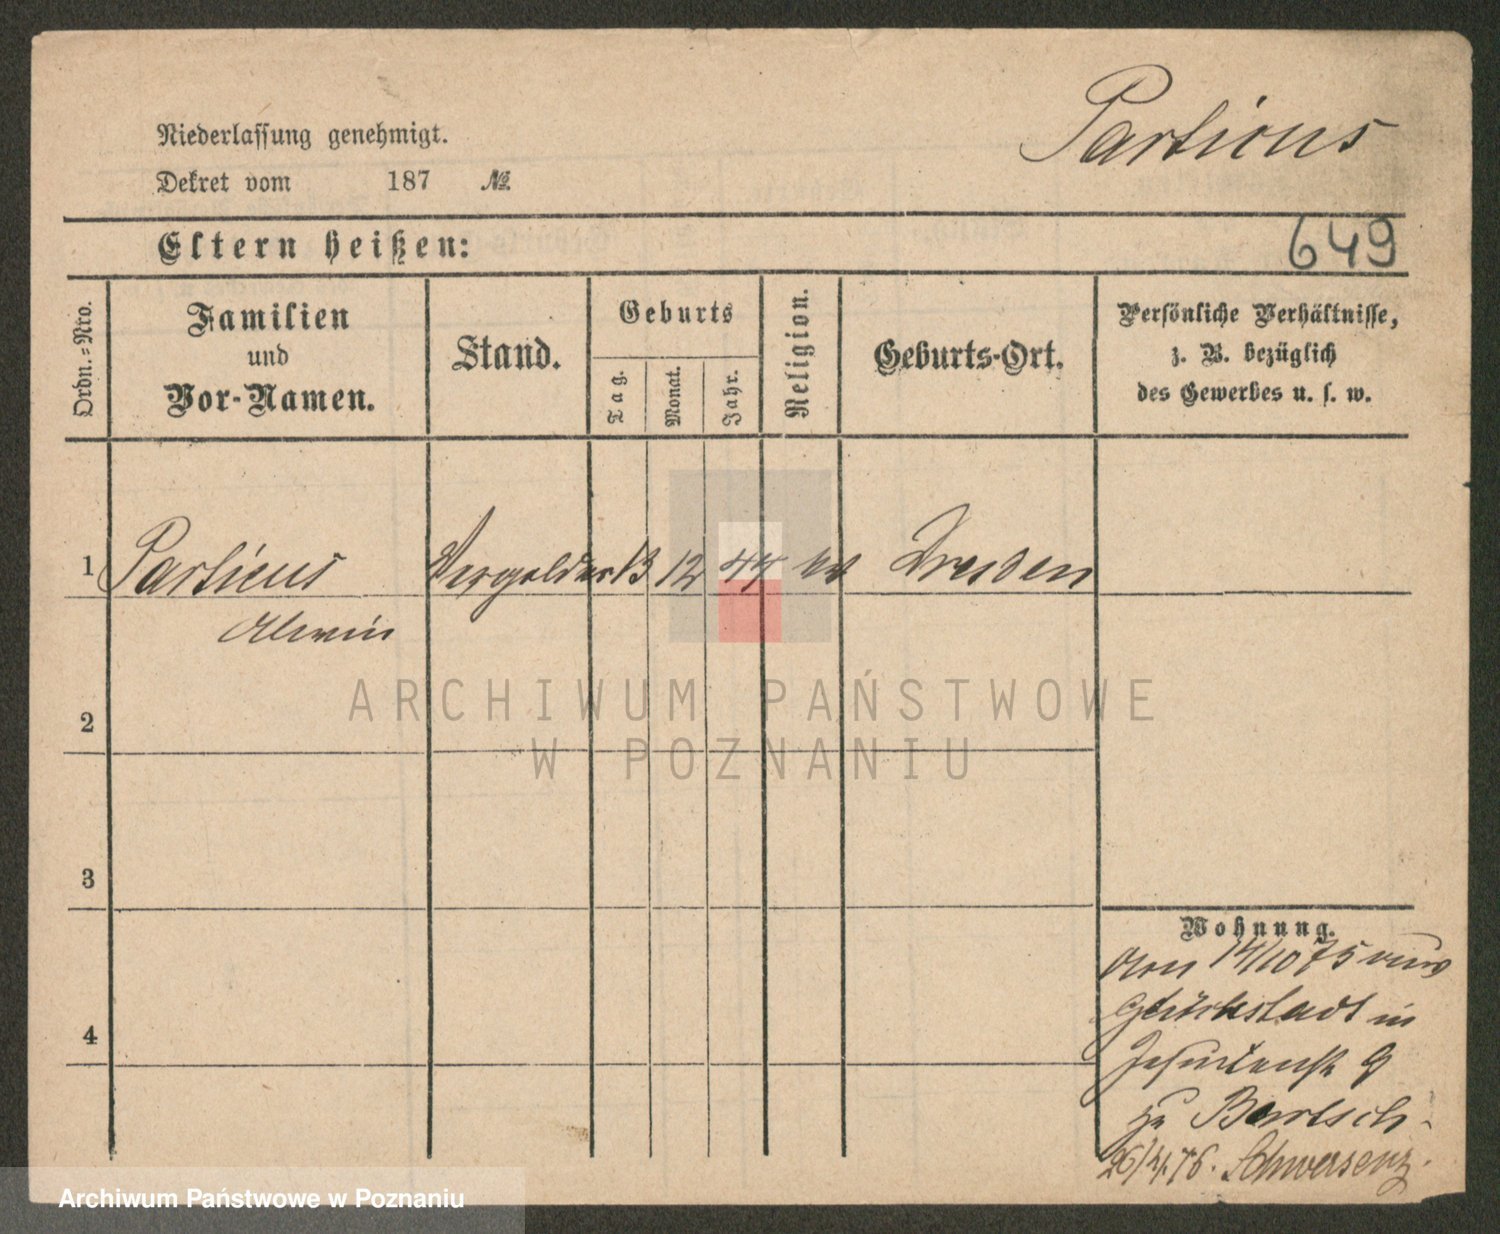 Particus
Niederlassung genehmigt.
Dekret vom 187 №.
Eltern heißen:
649
Ordn.=Nro.
Familien
und
Vor-Namen.
Stand.
Geburts
Tag.
Monat.
Jahr.
Religion.
Geburts-Ort.
Persönliche Verhältnisse,
z. B. bezüglich
des Gewerbes u. s. w.
1 Particus Vergolder 13 12 44 ev Dresden
Alwin
ARCHIWUM PAŃSTWOWE
2
W POZNANIU
3
Wohnung.
Von 14/10 75 aus
Glückstadt in
4
Jesuitenstr 9
zu Bartsch.
26/4.76. Schwersenz.
Archiwum Państwowe w Poznaniu